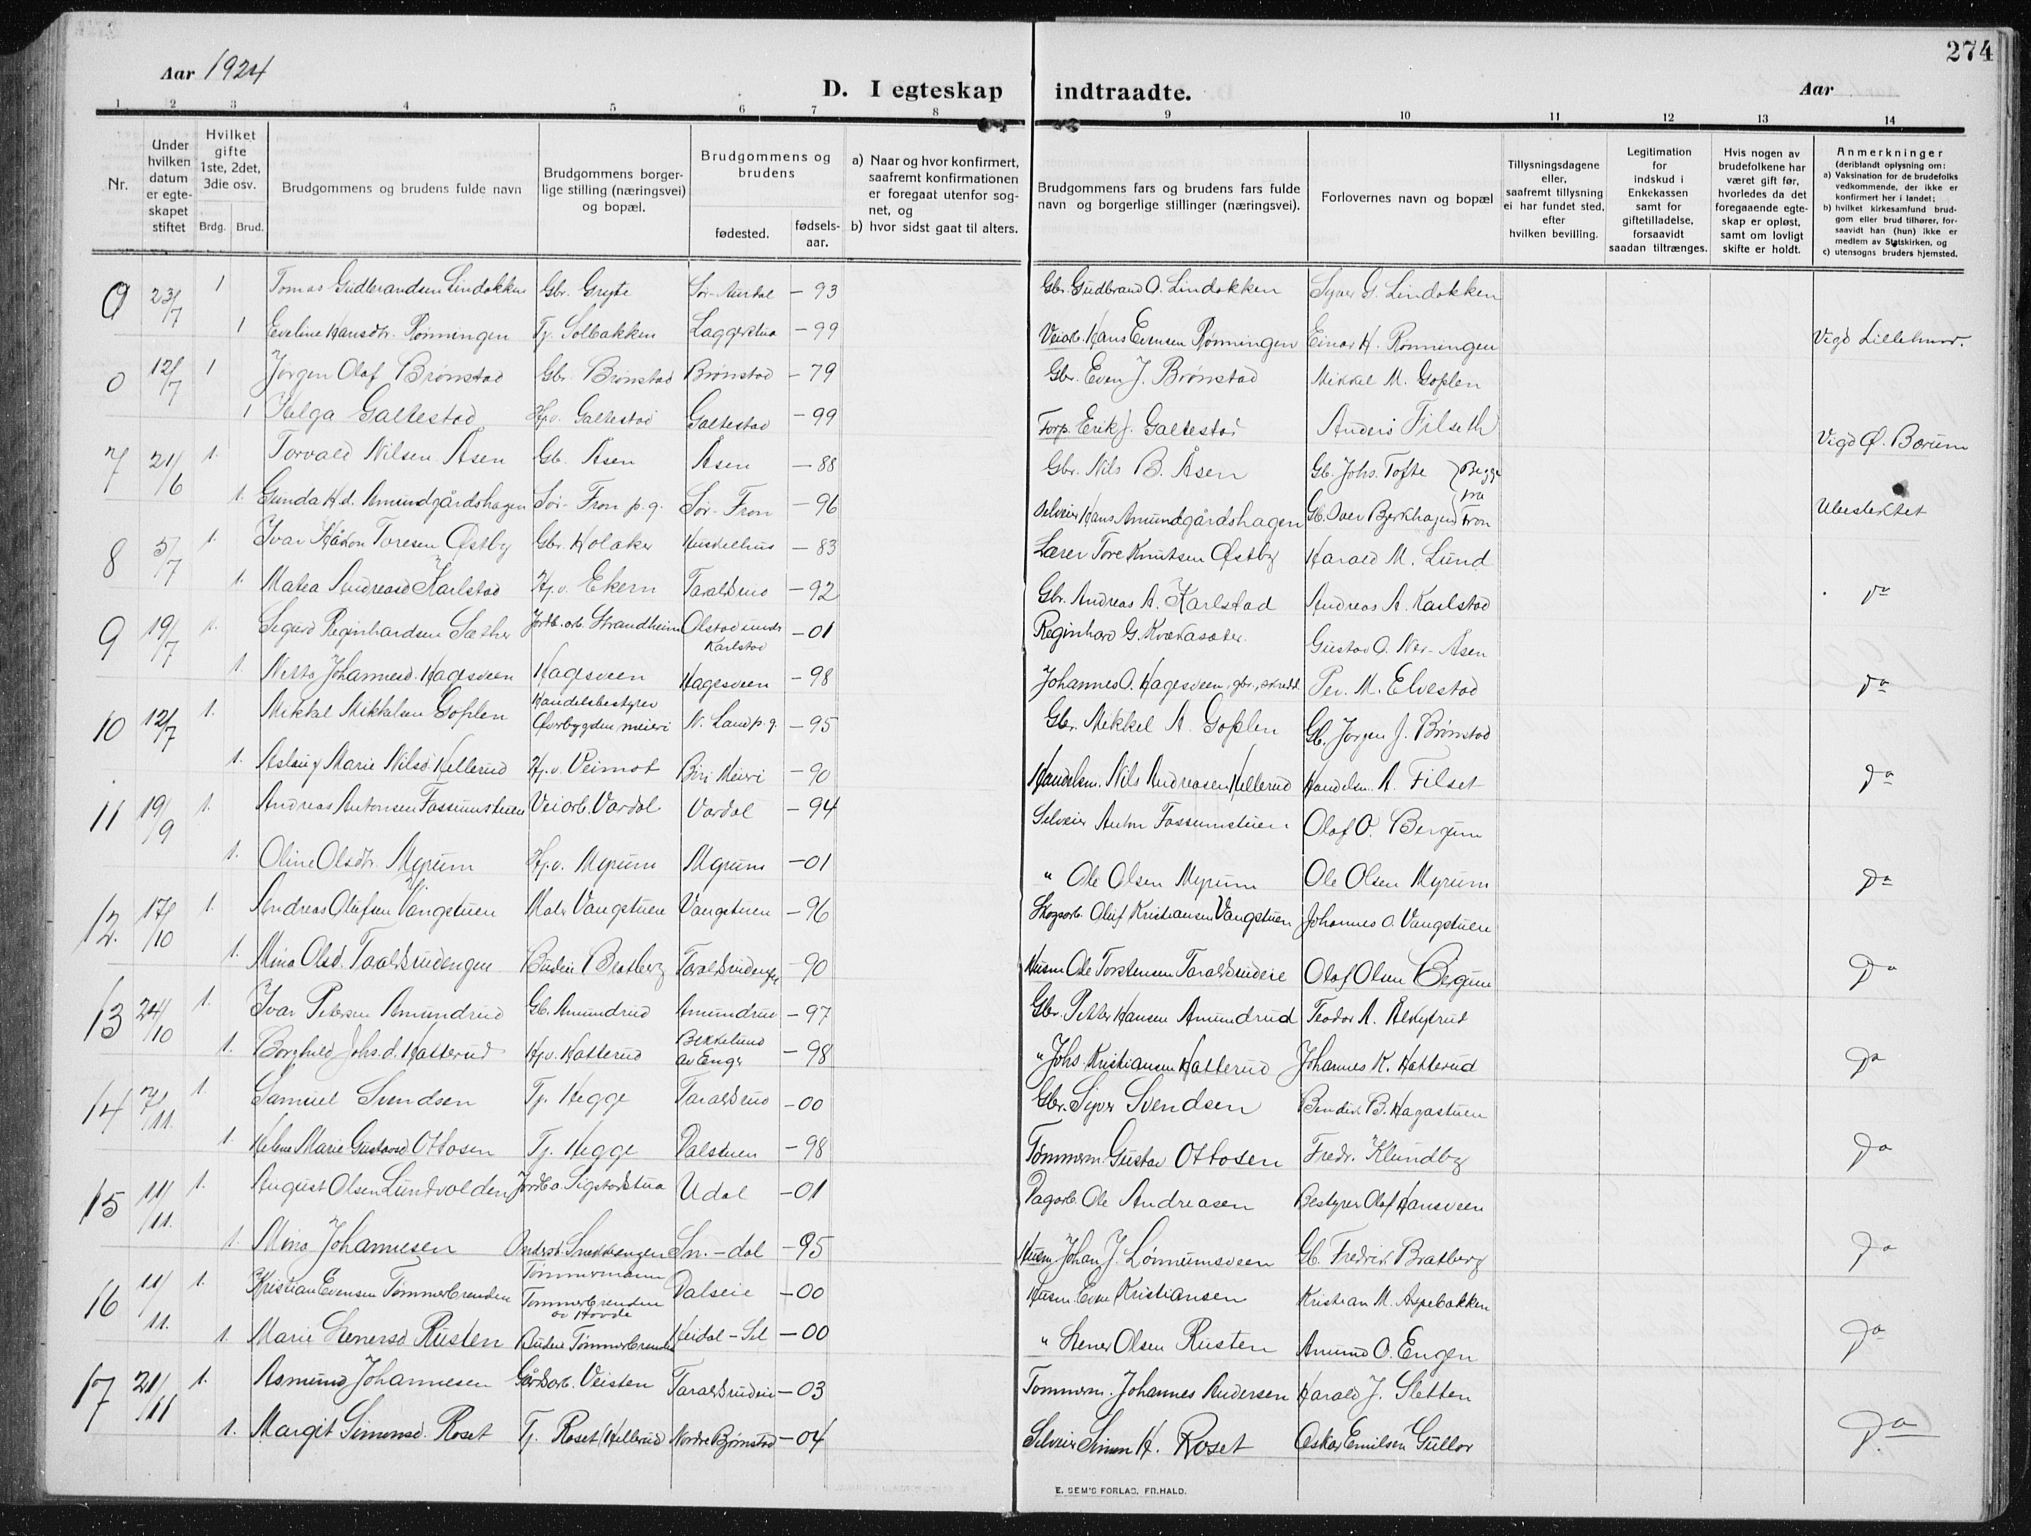 274
Aar 1924
Aar
D. I egteskap indtraadte.
1. 2 3 4 5 6 7 8 9 10 11 12 13 14
Nr.
Under hvilken datum er egteskapet stiftet
Hvilket gifte 1ste, 2det, 3die osv.
Brdg. Brud.
Brudgommens og brudens fulde navn
Brudgommens borgerlige stilling (næringsvei) og bopæl.
Brudgommens og brudens
fødested.
fødselsaar.
a) Naar og hvor konfirmert, saafremt konfirmationen er foregaat utenfor sognet, og
b) hvor sidst gaat til alters.
Brudgommens fars og brudens fars fulde navn og borgerlige stillinger (næringsvei).
Forlovernes navn og bopæl
Tillysningsdagene eller, saafremt tillysning ei har fundet sted, efter hvilken bevilling.
Legitimation for indskud i Enkekassen samt for giftetilladelse, forsaavidt saadan tiltrænges.
Hvis nogen av brudefolkene har været gift før, hvorledes da det foregaaende egteskap er opløst, samt om lovligt skifte er holdt.
Anmerkninger
(deriblandt oplysning om:
a) Vaksination for de brudefolks vedkommende, der ikke er konfirmert her i landet;
b) hvilket kirkesamfund brudgom eller brud tilhører, forsaavidt han (hun) ikke er medlem av Statskirken, og
c) utensogns bruders hjemsted.
0 23/7 1 Tomas Gudbrandsen Lindokken Gbr. Gryte Sør-Aurdal – 93 Gbr. Gudbrand O. Lindokken Syver G. Lindokken
1 Eveline Hansdtr. Rønningen Tj. Solbakken Laggerstua – 99 Veiarb. Hans Evensen Rønningen Einar H. Rønningen Vigd Lillehmr.
0 12/7 1 Jørgen Olaf Brønstad Gbr. Brønstad Brønstad – 79 Gbr. Even J. Brønstad Mikkel M. Goplen
1 Helga Galtestad Hj.v. Galtestad Galtestad – 99 Forp. Erik J. Galtestad Anders Filseth Vigd Ø. Bærum
7 21/6 1. Torvald Nilsen Åsen Gb. Åsen Åsen – 88 Gbr. Nils B. Åsen Gb. Johs. Tofte } Begge
1. Gunda H.d. Amundgårdshagen Sør-Fron p.g. Sør-Fron – 96 Selveier Hans Amundgårdshagen Gb. Iver Berkhagen } fra Fron Ubesterket
8 5/7 1. Ivar Håkon Toresen Østby Gbr. Kolaker Huskelhus – 83 Lærer Tore Knutsen Østby Harald M. Lund
1. Matea Andreasd Karlstad Hj.v. Ekern Taralsrud – 92 Gbr. Andreas A. Karlstad Andreas A. Karlstad Do
9 19/7 1. Sigurd Reginhardsen Sæther Jordb.arb. Strandheim Olstad under Karlstad – 01 Reginhard G. Kvekasæter Gustav O. Ner-Åsen
1. Netta Johannesd. Hagesveen Hagesveen Hagesveen – 98 Johannes O. Hagesveen, gbr., skredd. Per. M. Elvestad Do
10 12/7 1. Mikkel Mikkelsen Goplen Handelsbestyrer Øverbygden meieri N. Land p.g. – 95 Gbr. Mikkel A. Goplen Gb. Jørgen J. Brønstad
1. Aslaug Marie Nilsd. Hellerud Hj.v. Veimot Biri Meieri – 90 Handelsm. Nils Andreasen Hellerud Handelsm. A. Filset Do
11 19/9 1. Andreas Antonsen Fossumstuen Veiarb. Vardal Vardal – 94 Selveier Anton Fossumstuen Olaf O. Bergum
1. Oline Olsdtr. Myrum Hj.v. Myrum Myrum – 01 " Ole Olsen Myrum Ole Olsen Myrum Do
12. 17/10 1. Andreas Olufsen Vangstuen Maler Vangstuen Vangstuen – 96 Skogsarb. Oluf Kristiansen Vangstuen Johannes O. Vangstuen
1. Mina Olsd. Taralsrudengen Budeie Bratberg Taralsrudengen – 90 Husm. Ole Torstensen Taralsrudeie Olaf Olsen Bergum Do
13 24/10 1. Ivar Petersen Amundrud Gb. Amundrud Amundrud – 97 Gbr. Petter Hansen Amundrud Teodor A. Alkytrud
1. Borghild Johs.d. Hatterud Hj.v. Hatterud Bekkelund av Enge – 98 " Johs. Kristiansen Hatterud Johannes K. Hatterud Do
14 7/11. 1. Samuel Svendsen Tj. Hegge Taralsrud – 00 Gbr. Syver Svendsen Bendik B. Hagastuen
1. Helene Marie Gustavsd Ottosen Tj. Hegge Dalstuen – 98 Tømmerm. Gustav Ottosen Fredr. Klundby Do
15 11/11. 1. August Olsen Lundvolden Jordb.a. Sigstadstua Udal – 01 Dagarb. Ole Andreasen Bestyrer Olaf Hansveen
1. Mina Johannesen Sn.-dal – 95 Husm. Johan J. Lønnumsveen Gb. Fredrik Bratberg Do
16 11/11. 1. Kristian Evensen Tømmergrenden Tømmermann Tømmergrenden av Hovde Dalseie – 00 Husm. Even Kristiansen Kristian M. Aspebakken
1. Marie Stenersd Rusten Budeie Tømmergrenden Heidal-Sel – 00 " Stener Olsen Rusten Amund O. Engen Do
17 21/11 1. Asmund Johannesen Gårdsarb. Veisten Taralsrudeie – 03 Tømmerm. Johannes Andersen Harald J. Sletten
1. Margit Simensd. Roset Tj. Roset/Hellerud Nordre Bjørnstad – 04 Selveier Simen H. Roset Oskar Emilsen Gullor Do.
E. SEM'S FORLAG, FR.HALD.